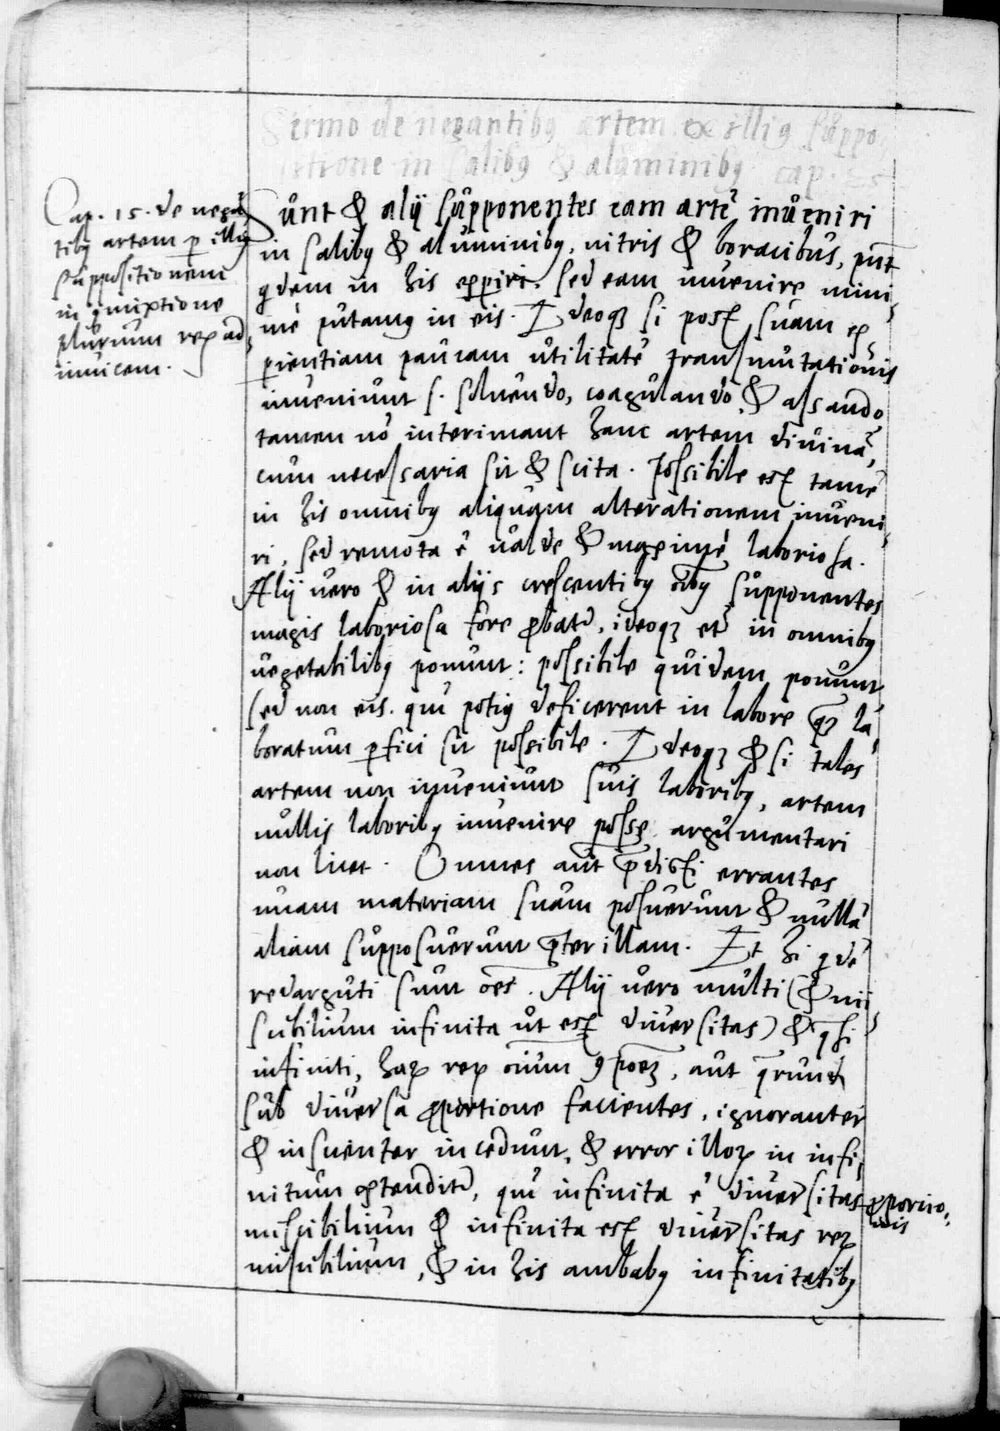 Sermo de negantibꝯ artem ex illiꝯ suppo
sitione in salibꝯ & aluminibꝯ cap. 15
Cap. 15. de negā
tibꝯ artem ꝑ illiꝯ
suppositionem
in ꝯmixtione
plurium reꝝ ad
invicem.
Sunt & alij supponentes eam artē inveniri
in salibꝯ & aluminibꝯ, nitris & boracibus, pnt̄
qdem in his experiri. sed eam invenire mini,
me putamꝯ in eis. Ideoqꝫ si post suam ex,
perientiam paucam utilitatē transmutationis
inveniunt s. solvendo, coagulando & assando,
tamen nō interimant hanc artem divinā,
cum necessaria sit & scita. Possibile est tamē
in his omnibꝯ aliquam alterationem inveni,
ri, sed remota ē valde & maxime laboriosa.
Alij vero & in alijs crescentibꝯ oībꝯ supponentes
magis laboriosa fore ꝓbatr̄, ideoqꝫ et̄ in omnibꝯ
vegetabilibꝯ ponunt: possibile quidem ponunt
sed non eis. qui potiꝯ deficerent in labore qꝫ la,
boratum ꝑfici sit possibile. Ideoqꝫ & si tales
artem non inveniunt suis laboribꝯ, artem
nullis laboribꝯ invenire posse argumentari
non licet. Omnes aut̄ p̄dicti errantes
unam materiam suam posuerunt & nullā
aliam supposuerunt p̄ter illam. Et hi qdē
redarguti sunt oēs. Alij vero multi (& mi,
scibilium infinita ut est diversitas) & qsi
infiniti, haꝝ reꝝ oīum ꝯpoēꝫ, aut q̄rundā
sub diversa ꝓportione facientes, ignoranter
& inscienter incedunt, & error illoꝝ in infi,
nitum ꝓtenditr̄, qui infinita ē diversitas ꝓporcio,
nis
miscibilium & infinita est diversitas reꝝ
miscibilium, & in his ambabꝯ infinitatibꝯ